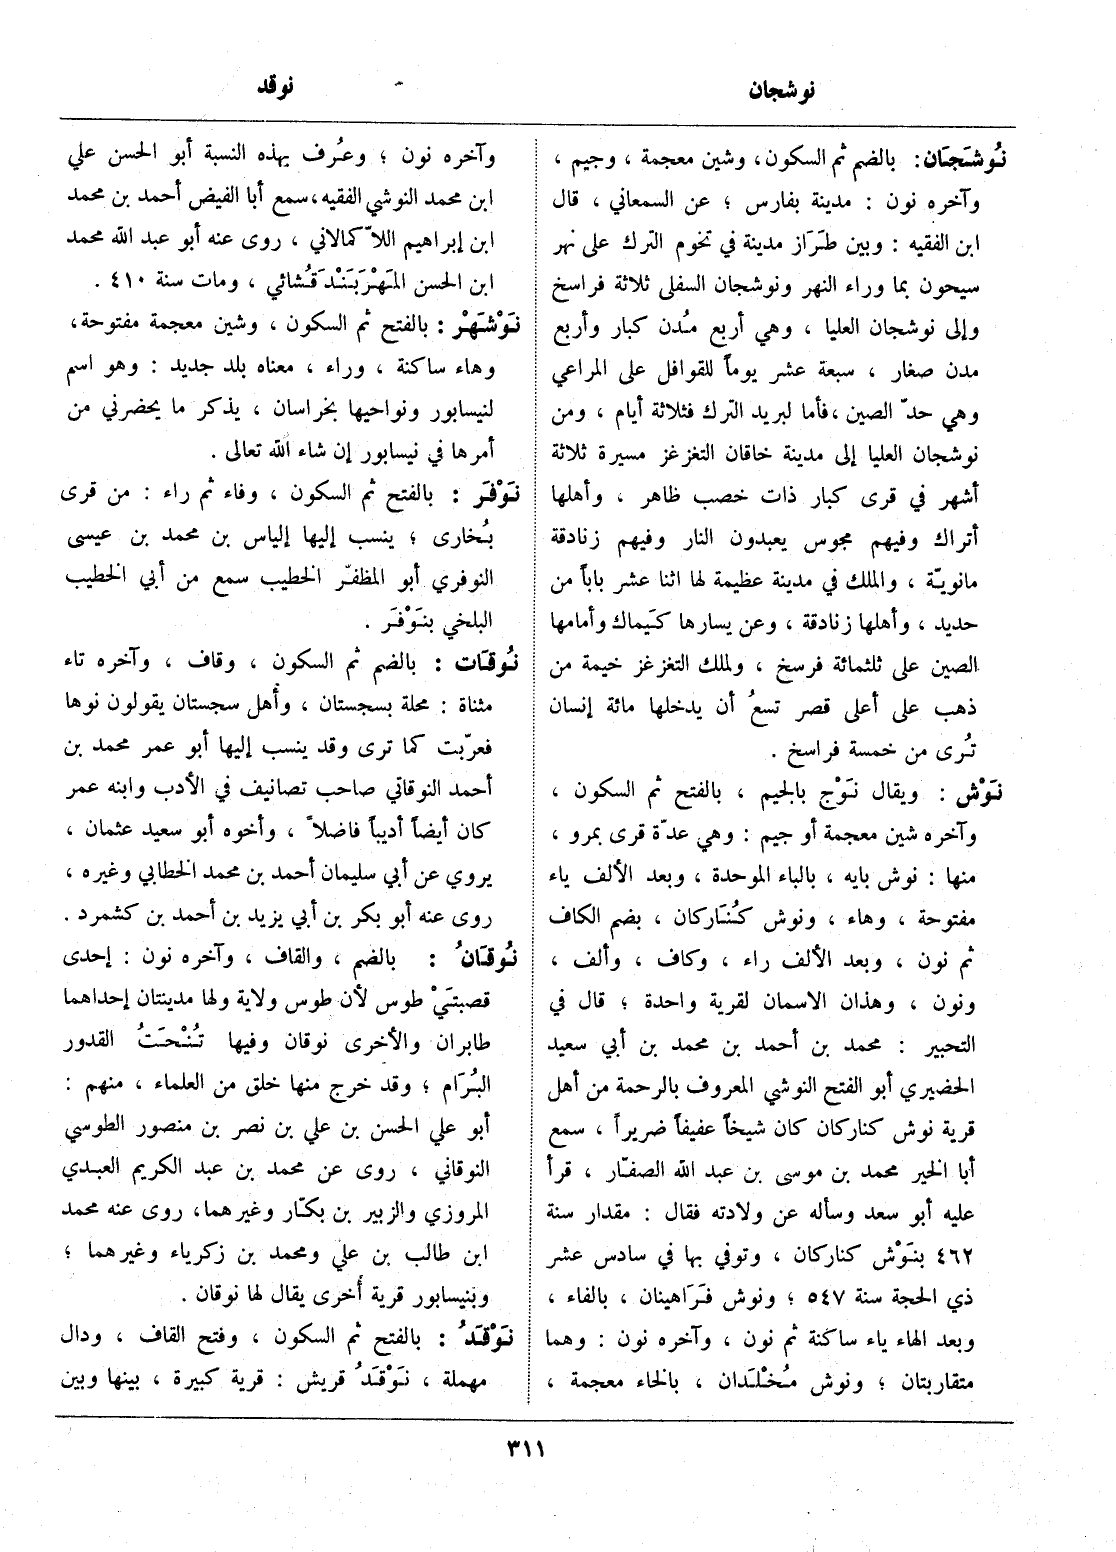 نوشجان
نوقد
نُوشَجَان: بالضم ثم السكون، وشين معجمة ، وجيم ،
وآخره نون : مدينة بفارس ؛ عن السمعاني ، قال
ابن الفقيه : وبين طَرَاز مدينة في تخوم الترك على نهر
سيحون بما وراء النهر ونوشجان السفلى ثلاثة فراسخ
وإلى نوشجان العليا ، وهي أربع مُدن كبار وأربع
مدن صغار ، سبعة عشر يوماً للقوافل على المراعي
وهي حدّ الصين ،فأما لبريد الترك فثلاثة أيام ، ومن
نوشجان العليا إلى مدينة خاقان التغزغز مسيرة ثلاثة
أشهر في قرى كبار ذات خصب ظاهر ، وأهلها
أتراك وفيهم مجوس يعبدون النار وفيهم زنادقة
مانويّة ، والملك في مدينة عظيمة لها اثنا عشر باباً من
حديد ، وأهلها زنادقة ، وعن يسارها كَيماك وأمامها
الصين على ثلثمائة فرسخ ، ولملك التغزغز خيمة من
ذهب على أعلى قصر تسعُ أن يدخلها مائة إنسان
تُرى من خمسة فراسخ .
نَوْش : ويقال نَوْج بالجيم ، بالفتح ثم السكون ،
وآخره شين معجمة أو جيم : وهي عدّة قرى بمرو ،
منها : نوش بايه ، بالباء الموحدة ، وبعد الألف ياء
مفتوحة ، وهاء ، ونوش كُنَاركان ، بضم الكاف
ثم نون ، وبعد الألف راء ، وكاف ، وألف ،
ونون ، وهذان الاسمان لقرية واحدة ؛ قال في
التحبير : محمد بن أحمد بن محمد بن أبي سعيد
الحضيري أبو الفتح النوشي المعروف بالرحمة من أهل
قرية نوش كناركان كان شيخاً عفيفاً ضريراً ، سمع
أبا الخير محمد بن موسى بن عبد الله الصفّار ، قرأ
عليه أبو سعد وسأله عن ولادته فقال : مقدار سنة
٤٦٢ بنَوْش كناركان ، وتوفي بها في سادس عشر
ذي الحجة سنة ٥٤٧ ؛ ونوش فَرَاهينان ، بالفاء ،
وبعد الهاء ياء ساكنة ثم نون ، وآخره نون : وهما
متقاربتان ؛ ونوش مُخْلَدان ، بالخاء معجمة ،
وآخره نون ؛ وعُرف بهذه النسبة أبو الحسن علي
ابن محمد النوشي الفقيه،سمع أبا الفيض أحمد بن محمد
ابن إبراهيم اللاّكمالاني ، روى عنه أبو عبد الله محمد
ابن الحسن المَهْرَبَنْدَقُشائي ، ومات سنة ٤١٠ .
نَوْشَهْر : بالفتح ثم السكون ، وشين معجمة مفتوحة،
وهاء ساكنة ، وراء ، معناه بلد جديد : وهو اسم
لنيسابور ونواحيها بخراسان ، يذكر ما يحضرني من
أمرها في نيسابور إن شاء الله تعالى .
نَوْفَر : بالفتح ثم السكون ، وفاء ثم راء : من قرى
بُخارى ؛ ينسب إليها إلياس بن محمد بن عيسى
النوفري أبو المظفّر الخطيب سمع من أبي الخطيب
البلخي بنَوْفَر .
نُوقَات : بالضم ثم السكون ، وقاف ، وآخره تاء
مثناة : محلة بسجستان ، وأهل سجستان يقولون نوها
فعرّبت كما ترى وقد ينسب إليها أبو عمر محمد بن
أحمد النوقاتي صاحب تصانيف في الأدب وابنه عمر
كان أيضاً أديباً فاضلاً ، وأخوه أبو سعيد عثمان ،
يروي عن أبي سليمان أحمد بن محمد الخطابي وغيره ،
روى عنه أبو بكر بن أبي يزيد بن أحمد بن كشمرد .
نُوقَانُ : بالضم ، والقاف ، وآخره نون : إحدى
قصبتَيْ طوس لأن طوس ولاية ولها مدينتان إحداهما
طابران والأخرى نوقان وفيها تُنْحَتُ القدور
البُرَام ؛ وقد خرج منها خلق من العلماء ، منهم :
أبو علي الحسن بن علي بن نصر بن منصور الطوسي
النوقاني ، روى عن محمد بن عبد الكريم العبدي
المروزي والزبير بن بكّار وغيرهما، روى عنه محمد
ابن طالب بن علي ومحمد بن زكرياء وغيرهما ؛
وبنيسابور قرية أُخرى يقال لها نوقان .
نَوْقَدُ : بالفتح ثم السكون ، وفتح القاف ، ودال
مهملة ، نَوْقَدُ قريش : قرية كبيرة ، بينها وبين
٣١١